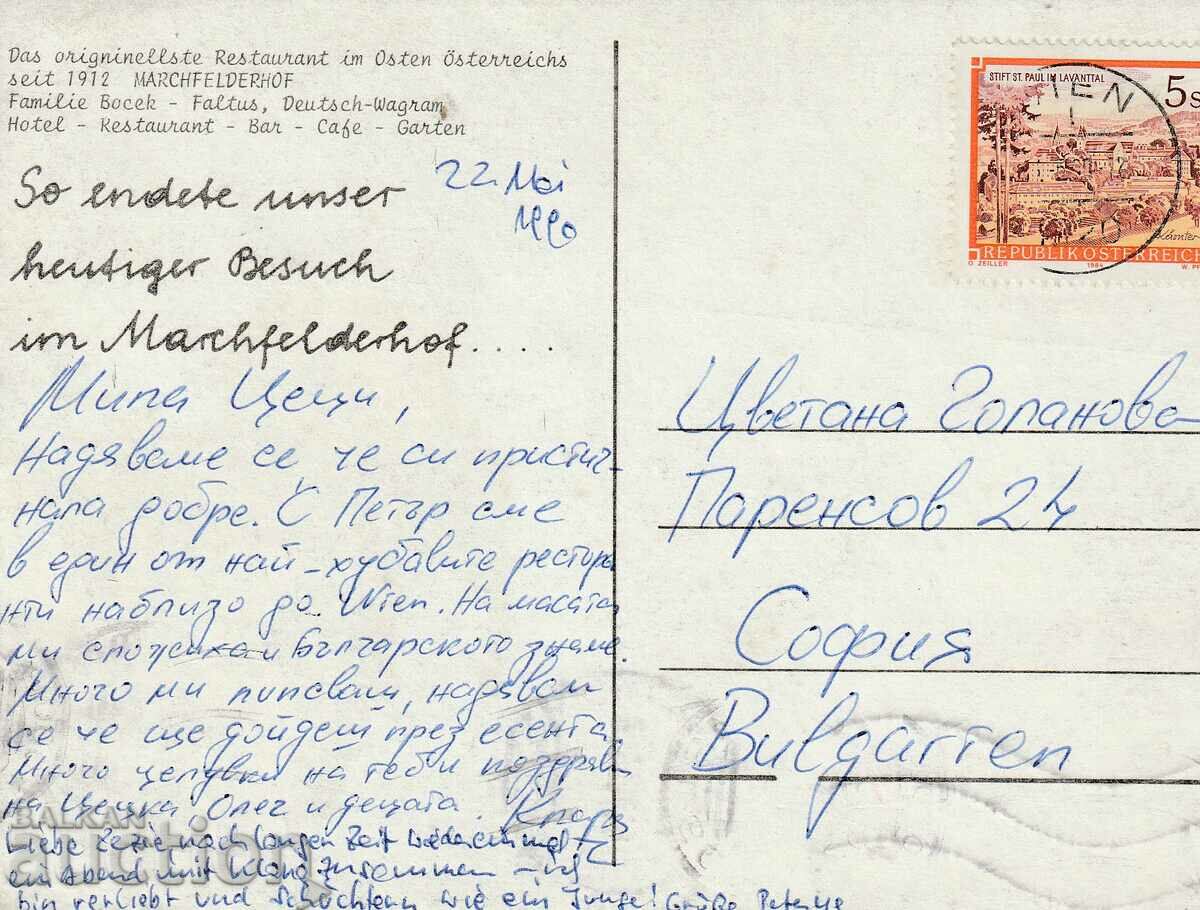 Das origninellste Restaurant im Osten Österreichs
seit 1912 MARCHFELDERHOF
Familie Bocek - Faltus, Deutsch-Wagram
Hotel - Restaurant - Bar - Cafe - Garten
So endete unser
heutiger Besuch
im Marchfelderhof.....
22. Mai
1990
STIFT ST. PAUL IM LAVANTTAL
5s
WIEN
REPUBLIK ÖSTERREICH
O. ZEILLER 1984 W. PF
Мила Цеци,
Надяваме се че си пристиг-
нала добре. С Петър сме
в един от най-хубавите рестора
нти наблизо до Wien. На масата
ми сложиха и Българското знаме.
Много ми липсваш, надявам
се че ще дойдеш през есента.
Много целувки на теб и поздрави
на Цецка, Олег и децата.
Liebe nach langer Zeit wiedereinmal
ein Abend mit zusammen - ich
bin verliebt und schüchtern wie ein Junge! Grüße
Цветана Голанова
Паренсов 24
София
Bulgarien
BALKAN
auction